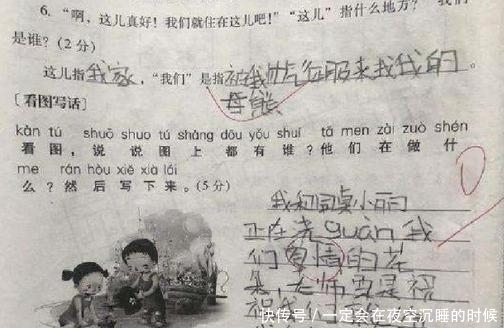 6. “啊，这儿真好！我们就住在这儿吧！”“这儿”指什么地方？“我们”
是谁？(2分)
这儿指我家，“我们”是指被我帅气征服来找我的
母熊。
[看图写话]
kàn tú shuō shuo tú shàng dōu yǒu shuí tā men zài zuò shén
看图，说说图上都有谁？他们在做什
me rán hòu xiě xià lái
么？然后写下来。(5分)
我和同桌小丽
正在浇guàn我
们爱情的花
朵，老师真是祝
我们
快传号／一定会在夜空沉睡的时候